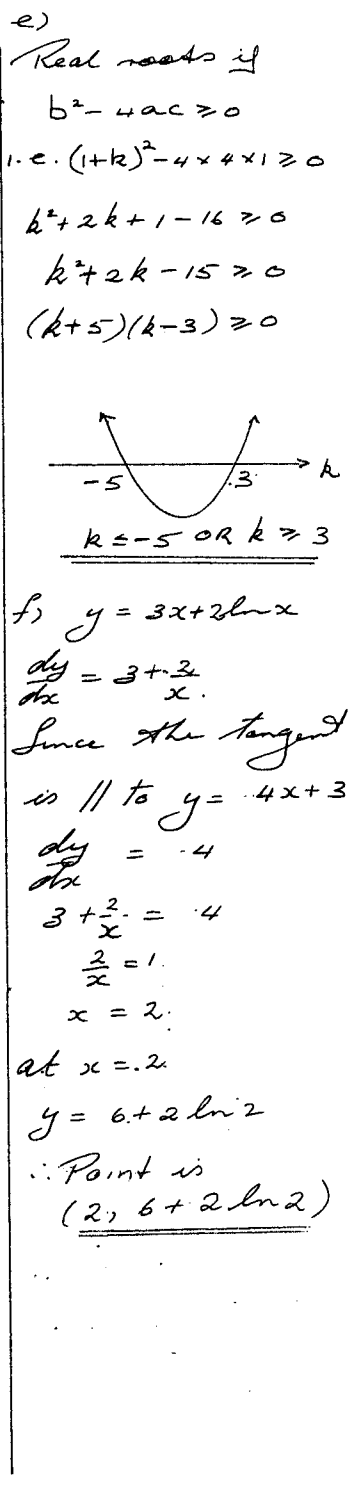 e)
Real roots if
b² - 4ac ≥ 0
i.e. (1+k)² - 4 × 4 × 1 ≥ 0
k² + 2k + 1 - 16 ≥ 0
k² + 2k - 15 ≥ 0
(k+5)(k-3) ≥ 0
-5 3 k
k ≤ -5 OR k ≥ 3
f) y = 3x + 2ln x
dy/dx = 3 + 2/x.
Since the tangent
is // to y = 4x + 3
dy/dx = 4
3 + 2/x = 4
2/x = 1
x = 2.
at x = 2.
y = 6 + 2 ln 2
∴ Point is
(2, 6 + 2 ln 2)